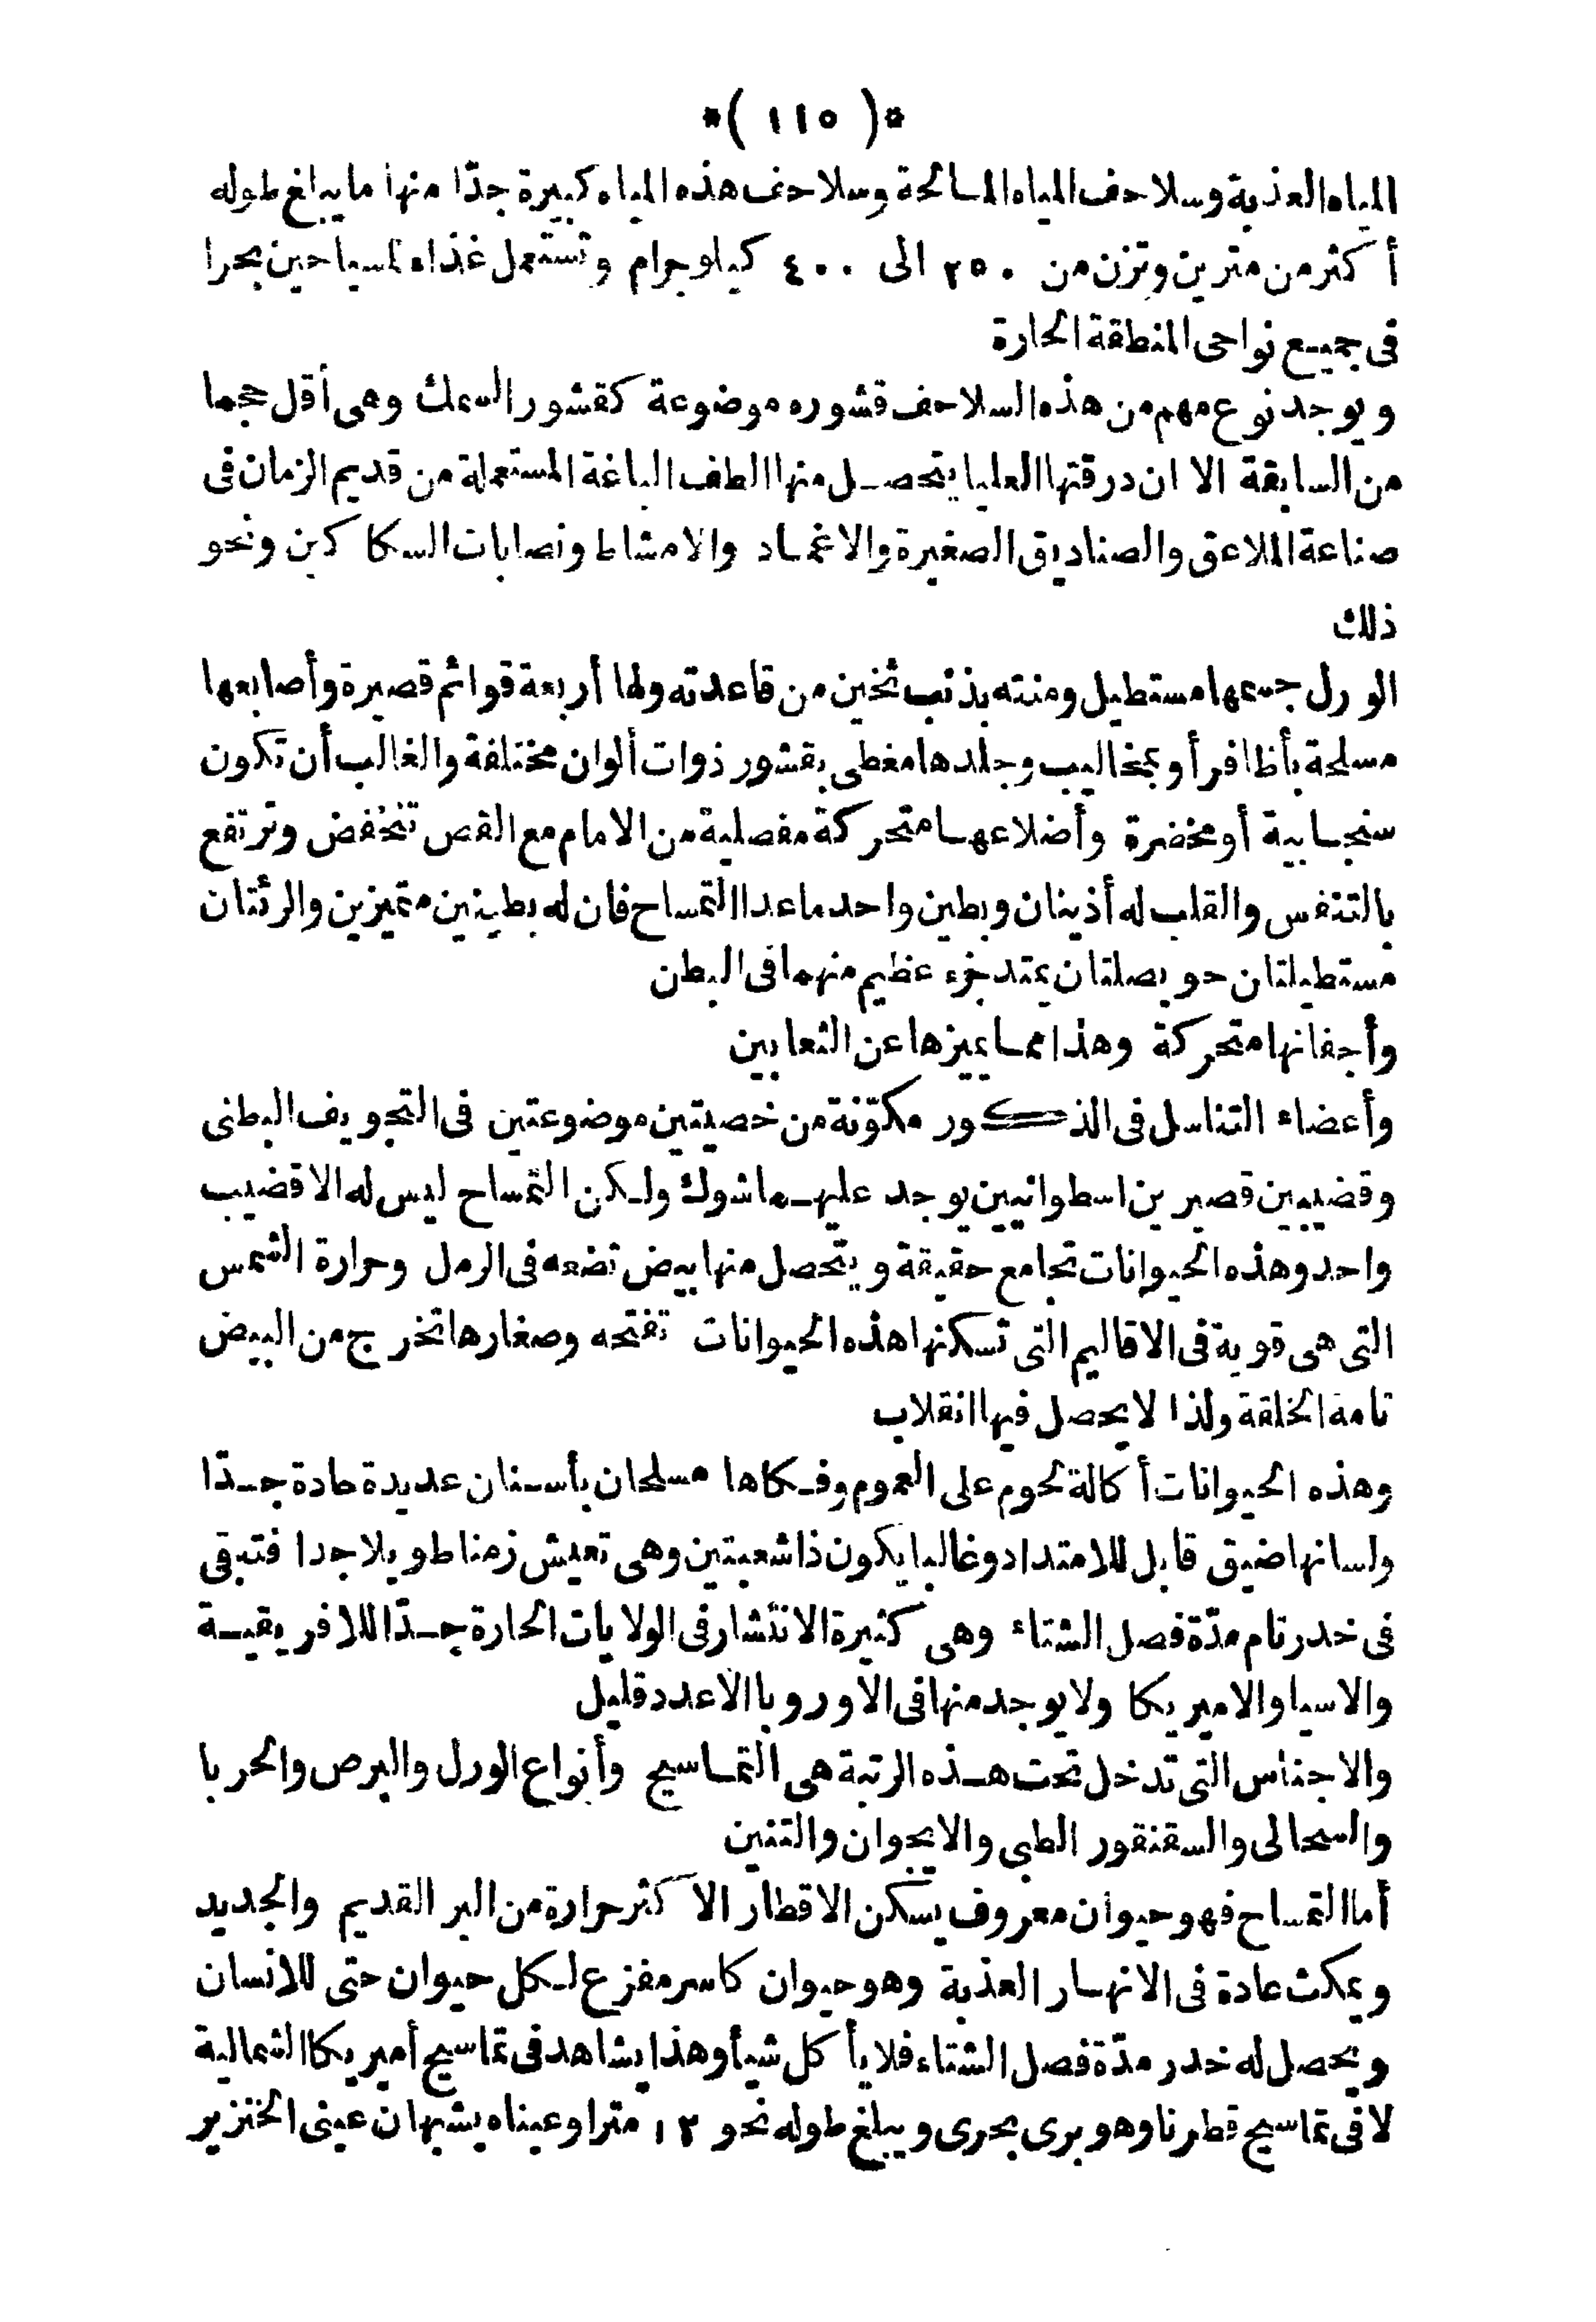 *( ١١٥ )*
المياه العذبة وسلاحف المياه المالحة وسلاحف هذه المياه كبيرة جدّا منها ما يبلغ طوله
أكثر من مترين وتزن من ٢٥٠ الى ٤٠٠ كيلوجرام وتستعمل غذاء لسياحين بحرا
فى جميع نواحى المنطقة الحارة
ويوجد نوع مهم من هذه السلاحف قشوره موضوعة كقشور السمك وهى أقل حجما
من السابقة الا ان درقتها العليا يتحصل منها الطف الباغة المستعملة من قديم الزمان فى
صناعة الملاعق والصناديق الصغيرة والاغماد والامشاط ونصابات السكاكين ونحو
ذلك
الورل جسمها مستطيل ومنته بذنب ثخين من قاعدته ولها أربعة قوائم قصيرة وأصابعها
مسلحة بأظافر أو بمخاليب وجلدها مغطى بقشور ذوات ألوان مختلفة والغالب أن تكون
سنجابية أو مخضرة وأضلاعها متحركة مفصلية من الامام مع القص تنخفض وترتفع
بالتنفس والقلب له أذينان وبطين واحد ماعدا التمساح فان له بطينين متميزين والرئتان
مستطيلتان حويصلتان يمتد جزء عظيم منهما فى البطن
وأجفانها متحركة وهذا مما يميزها عن الثعابين
وأعضاء التناسل فى الذكور مكوّنة من خصيتين موضوعتين فى التجويف البطنى
وقضيبين قصيرين اسطوانيين يوجد عليهما شوك ولكن التمساح ليس له الا قضيب
واحد وهذه الحيوانات تجامع حقيقة ويتحصل منها بيض تضعه فى الرمل وحرارة الشمس
التى هى قوية فى الاقاليم التى تسكنها هذه الحيوانات تفتحه وصغارها تخرج من البيض
تامة الخلقة ولذا لا يحصل فيها انقلاب
وهذه الحيوانات أكالة لحوم على العموم وفكاها مسلحان بأسنان عديدة حادة جدّا
ولسانها ضيق قابل للامتداد وغالبا يكون ذا شعبتين وهى تعيش زمنا طويلا جدا فتبقى
فى خدر تام مدّة فصل الشتاء وهى كثيرة الانتشار فى الولايات الحارة جدّا للافريقية
والاسيا والاميريكا ولا يوجد منها فى الاوروبا الا عدد قليل
والاجناس التى تدخل تحت هذه الرتبة هى التماسيح وأنواع الورل والبرص والحربا
والسحالى والسقنقور الطبى والايجوان والتنين
أما التمساح فهو حيوان معروف يسكن الاقطار الاكثر حرارة من البر القديم والجديد
ويمكث عادة فى الانهار العذبة وهو حيوان كاسر مفزع لكل حيوان حتى للانسان
ويحصل له خدر مدّة فصل الشتاء فلا يأكل شيأ وهذا يشاهد فى تماسيح أميريكا الشمالية
لا فى تماسيح قطرنا وهو برى بحرى ويبلغ طوله نحو ١٢ مترا وعيناه يشبهان عينى الخنزير